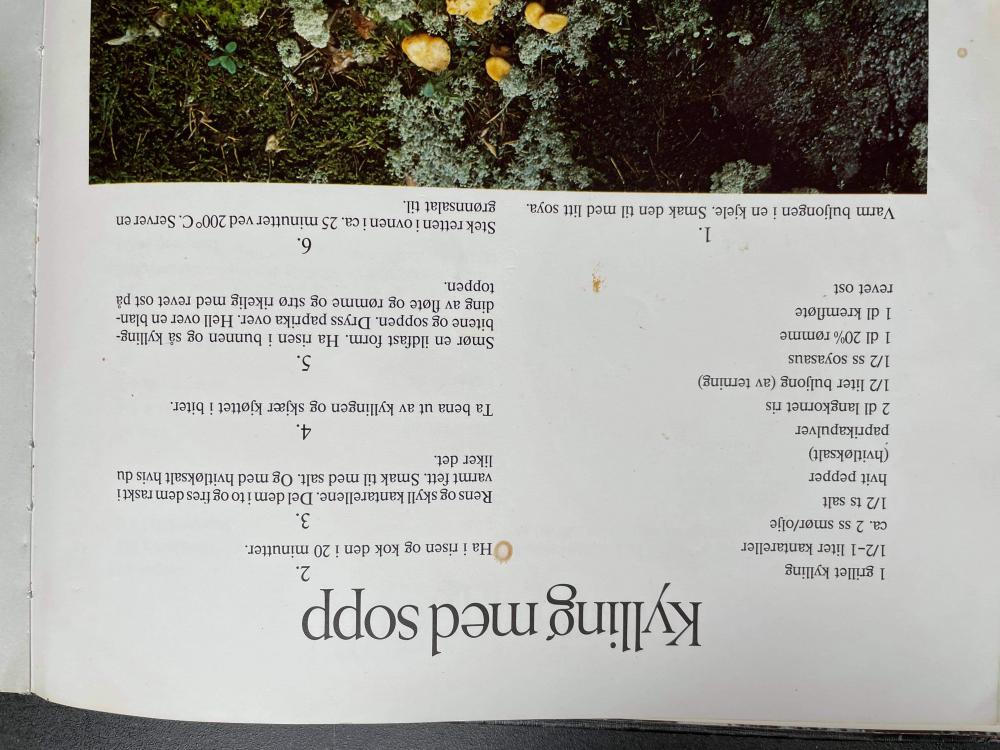 Kylling med sopp
1 grillet kylling
1/2-1 liter kantareller
ca. 2 ss smør/olje
1/2 ts salt
hvit pepper
(hvitløksalt)
paprikapulver
2 dl langkornet ris
1/2 liter buljong (av terning)
1/2 ss soyasaus
1 dl 20% rømme
1 dl kremfløte
revet ost
1.
Varm buljongen i en kjele. Smak den til med litt soya.
2.
Ha i risen og kok den i 20 minutter.
3.
Rens og skyll kantarellene. Del dem i to og fres dem raskt i
varmt fett. Smak til med salt. Og med hvitløksalt hvis du
liker det.
4.
Ta bena ut av kyllingen og skjær kjøttet i biter.
5.
Smør en ildfast form. Ha risen i bunnen og så kylling-
bitene og soppen. Dryss paprika over. Hell over en blan-
ding av fløte og rømme og strø rikelig med revet ost på
toppen.
6.
Stek retten i ovnen i ca. 25 minutter ved 200°C. Server en
grønnsalat til.